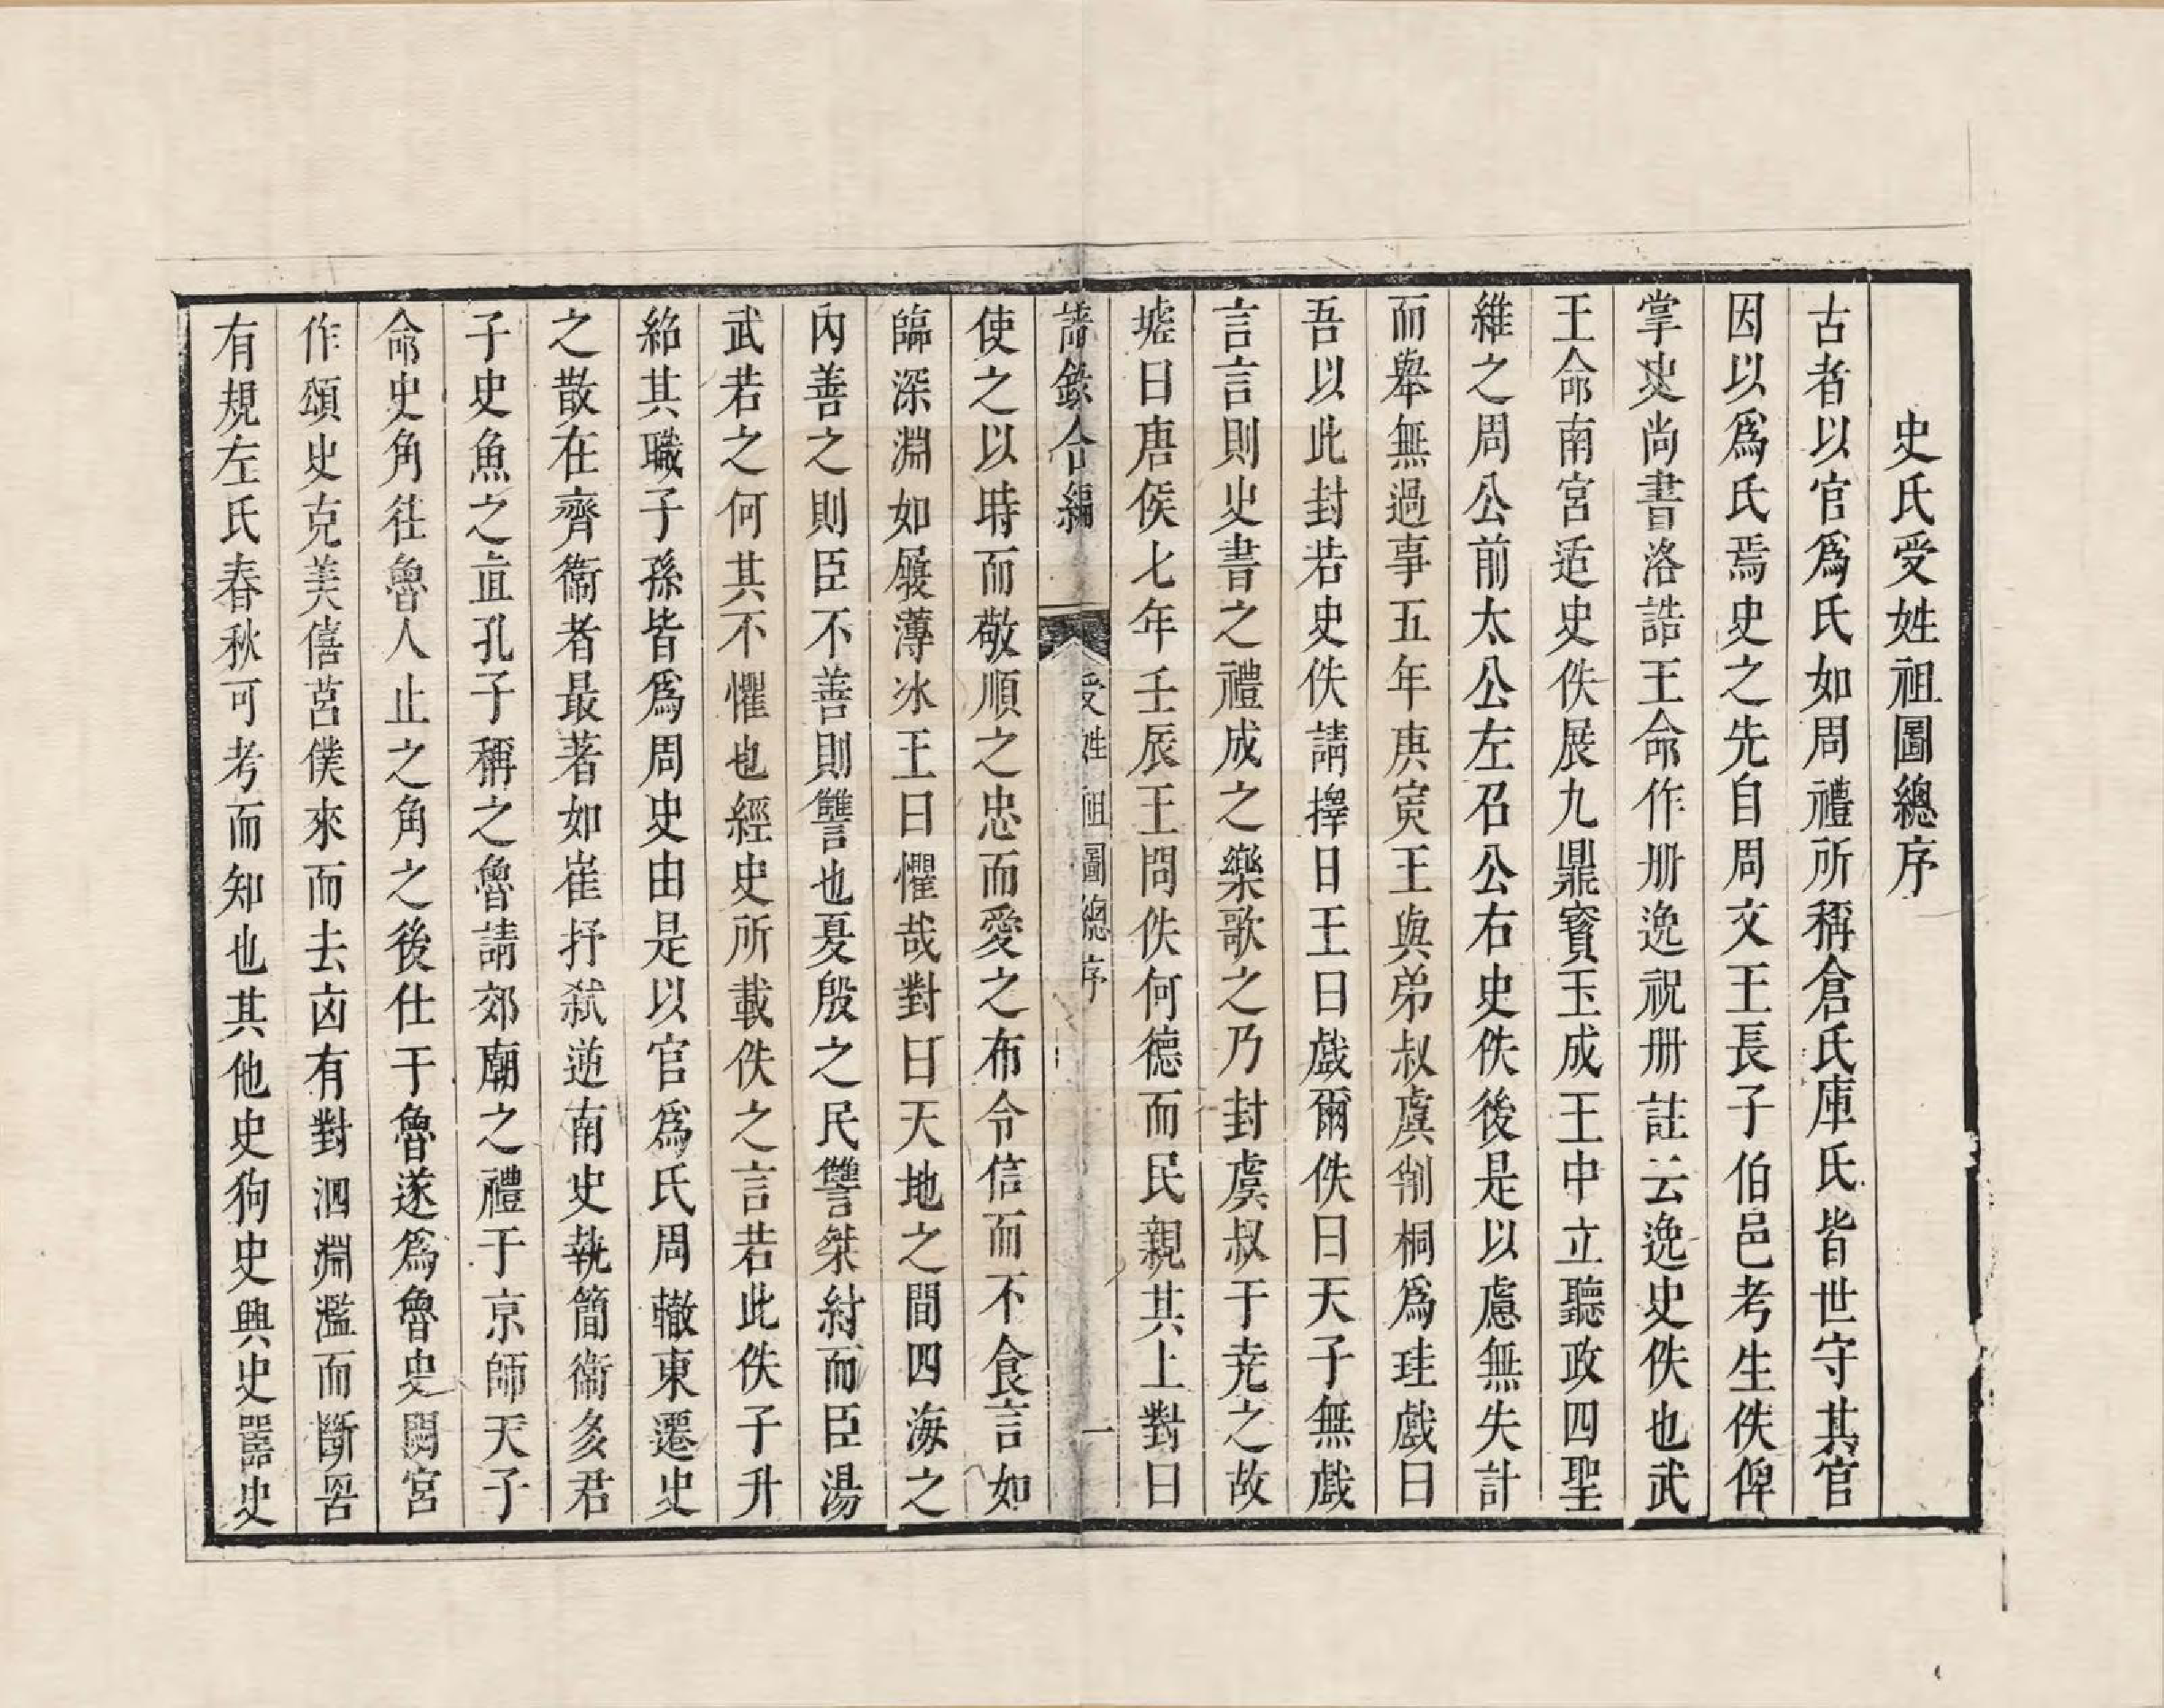 史氏受姓祖圖總序
古者以官爲氏如周禮所稱倉氏庫氏皆世守其官
因以爲氏焉史之先自周文王長子伯邑考生佚俾
掌史尚書洛誥王命作册逸祝册註云逸史佚也武
王命南宮适史佚展九鼎寳玉成王中立聽政四聖
維之周公前太公左召公右史佚後是以慮無失計
而舉無過事五年庚寅王與弟叔虞削桐爲珪戲曰
吾以此封若史佚請擇日王曰戲爾佚曰天子無戲
言言則史書之禮成之樂歌之乃封虞叔于尭之故
墟曰唐侯七年壬辰王問佚何德而民親其上對曰
譜錄合編 受姓祖圖總序 一
使之以時而敬順之忠而愛之布令信而不食言如
臨深淵如履薄冰王曰懼哉對曰天地之間四海之
內善之則臣不善則讐也夏殷之民讐桀紂而臣湯
武若之何其不懼也經史所載佚之言若此佚子升
紹其職子孫皆爲周史由是以官爲氏周轍東遷史
之散在齊衞者最著如崔抒弑逆南史執簡衞多君
子史魚之直孔子稱之魯請郊廟之禮于京師天子
命史角徃魯人止之角之後仕于魯遂爲魯史閟宮
作頌史克美僖莒僕來而去凶有對泗淵濫而斷罟
有規左氏春秋可考而知也其他史狗史興史嚚史